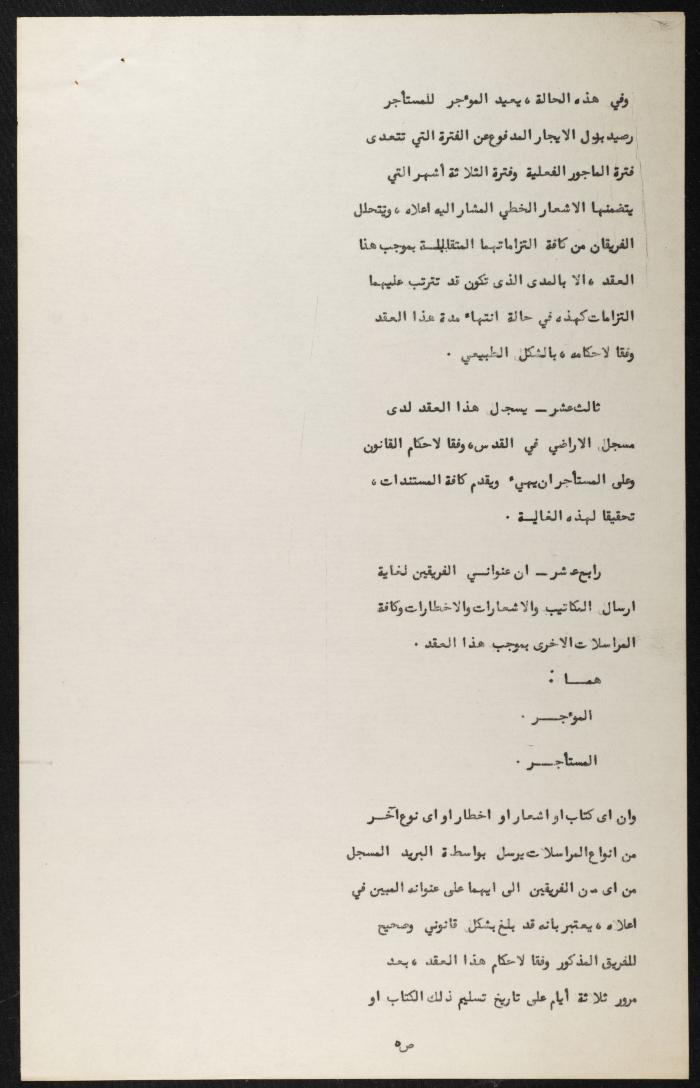 وفي هذه الحالة ، يعيد الموءجر للمستأجر
رصيد بدل الايجار المدفوع عن الفترة التي تتعدى
فترة الماجور الفعلية وفترة الثلاثة أشهر التي
يتضمنها الاشعار الخطي المشار اليه اعلاه ، ويتحلل
الفريقان من كافة التزاماتهما المتقابلة بموجب هذا
العقد ، الا بالمدى الذى تكون قد ترتبت عليهما
التزامات كهذه في حالة انتهاء مدة هذا العقد
وفقا لاحكامه ، بالشكل الطبيعي .
ثالث عشر ــ يسجل هذا العقد لدى
مسجل الاراضي في القدس، وفقا لاحكام القانون
وعلى المستأجر ان يهيء ويقدم كافة المستندات ،
تحقيقا لهذه الغايـة .
رابع عشر ــ ان عنوانـي الفريقين لغاية
ارسال المكاتيب والاشعارات والاخطارات وكافة
المراسلات الاخرى بموجب هذا العقد .
همــا :
الموءجــر .
المستأجــر .
وان اى كتاب او اشعار او اخطار او اى نوع آخـر
من انواع المراسلات يرسل بواسطة البريد المسجل
من اى من الفريقين الى ايهما على عنوانه المبين في
اعلاه ، يعتبر بانه قد بلغ بشكل قانوني وصحيح
للفريق المذكور وفقا لاحكام هذا العقد ، بعد
مرور ثلاثة أيام على تاريخ تسليم ذلك الكتاب او
ص٥